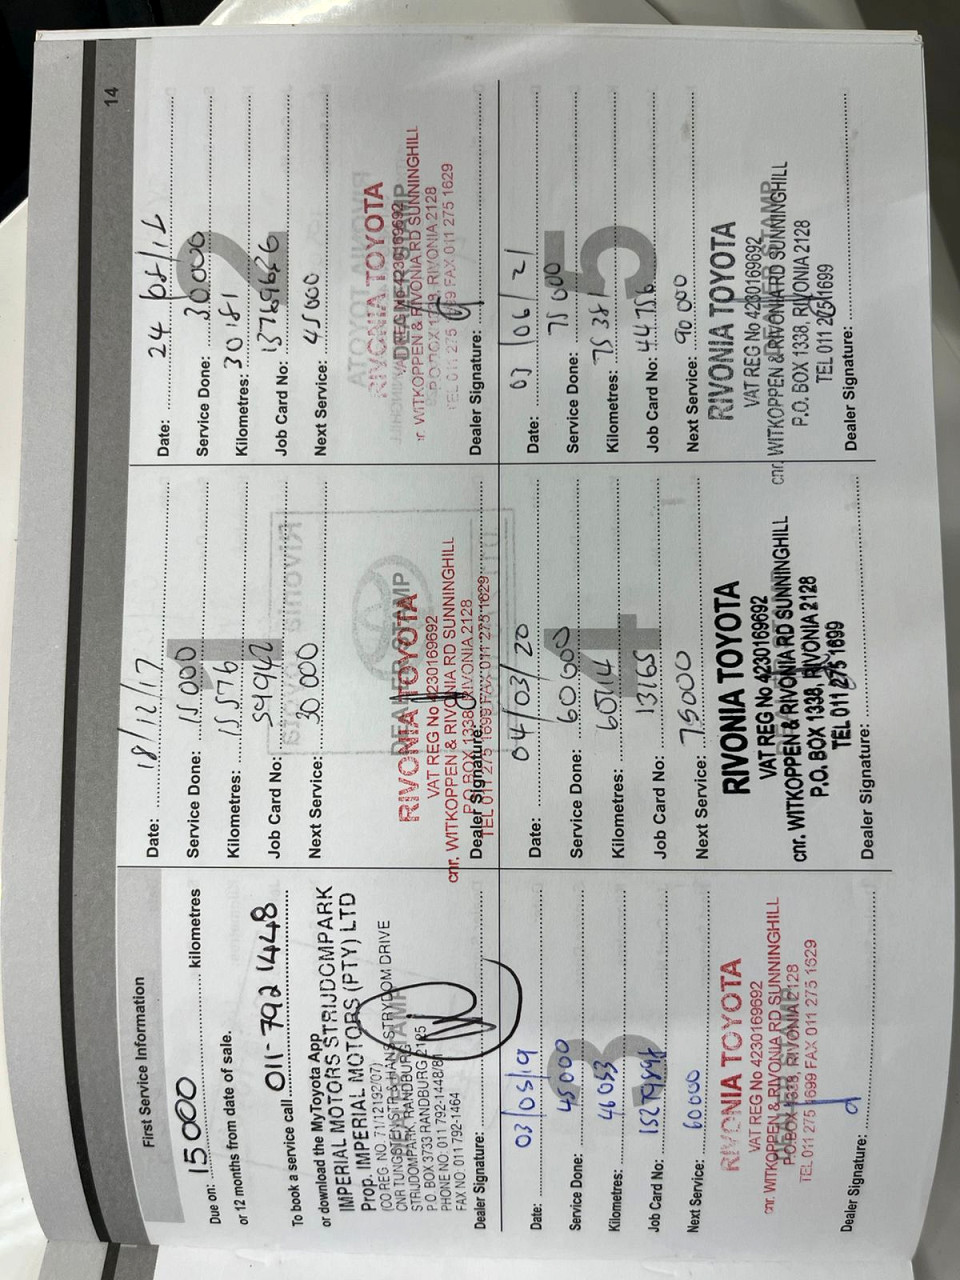 14
First Service Information
Due on: 15000 kilometres
or 12 months from date of sale.
To book a service call 011-792 1448
or download the MyToyota App
IMPERIAL MOTORS STRIJDOMPARK
Prop. IMPERIAL MOTORS (PTY) LTD
(CO REG. NO. 71/12192/07)
CNR TUNGSTEN STR & HANS STRYDOM DRIVE
STRIJDOMPARK, RANDBURG
P.O. BOX 3733 RANDBURG 2125
PHONE NO: 011 792-1448/8
FAX NO: 011 792-1464
Dealer Signature:
1
Date: 18/12/17
Service Done: 15000
Kilometres: 15576
Job Card No:
Next Service: 30 000
DEALER STAMP
RIVONIA TOYOTA
VAT REG No 4230169692
cnr. WITKOPPEN & RIVONIA RD SUNNINGHILL
P.O. BOX 1338, RIVONIA 2128
TEL 011 275 1699 FAX 011 275 1629
Dealer Signature:
2
Date: 24
Service Done: 30000
Kilometres: 30181
Job Card No:
Next Service: 45000
DEALER STAMP
RIVONIA TOYOTA
VAT REG No 4230169692
cnr. WITKOPPEN & RIVONIA RD SUNNINGHILL
P.O. BOX 1338, RIVONIA 2128
TEL 011 275 1699 FAX 011 275 1629
Dealer Signature:
3
Date: 03/05/19
Service Done: 45000
Kilometres: 46053
Job Card No:
Next Service: 60000
RIVONIA TOYOTA
VAT REG No 4230169692
cnr. WITKOPPEN & RIVONIA RD SUNNINGHILL
P.O. BOX 1338, RIVONIA 2128
TEL 011 275 1699 FAX 011 275 1629
Dealer Signature:
4
Date: 04/03/20
Service Done: 60000
Kilometres:
Job Card No: 13165
Next Service: 75000
RIVONIA TOYOTA
VAT REG No 4230169692
cnr. WITKOPPEN & RIVONIA RD SUNNINGHILL
P.O. BOX 1338, RIVONIA 2128
TEL 011 275 1699
Dealer Signature:
5
Date: 03/06/21
Service Done: 75000
Kilometres: 75381
Job Card No: 44756
Next Service: 90000
DEALER STAMP
RIVONIA TOYOTA
VAT REG No 4230169692
cnr. WITKOPPEN & RIVONIA RD SUNNINGHILL
P.O. BOX 1338, RIVONIA 2128
TEL 011 275 1699
Dealer Signature: